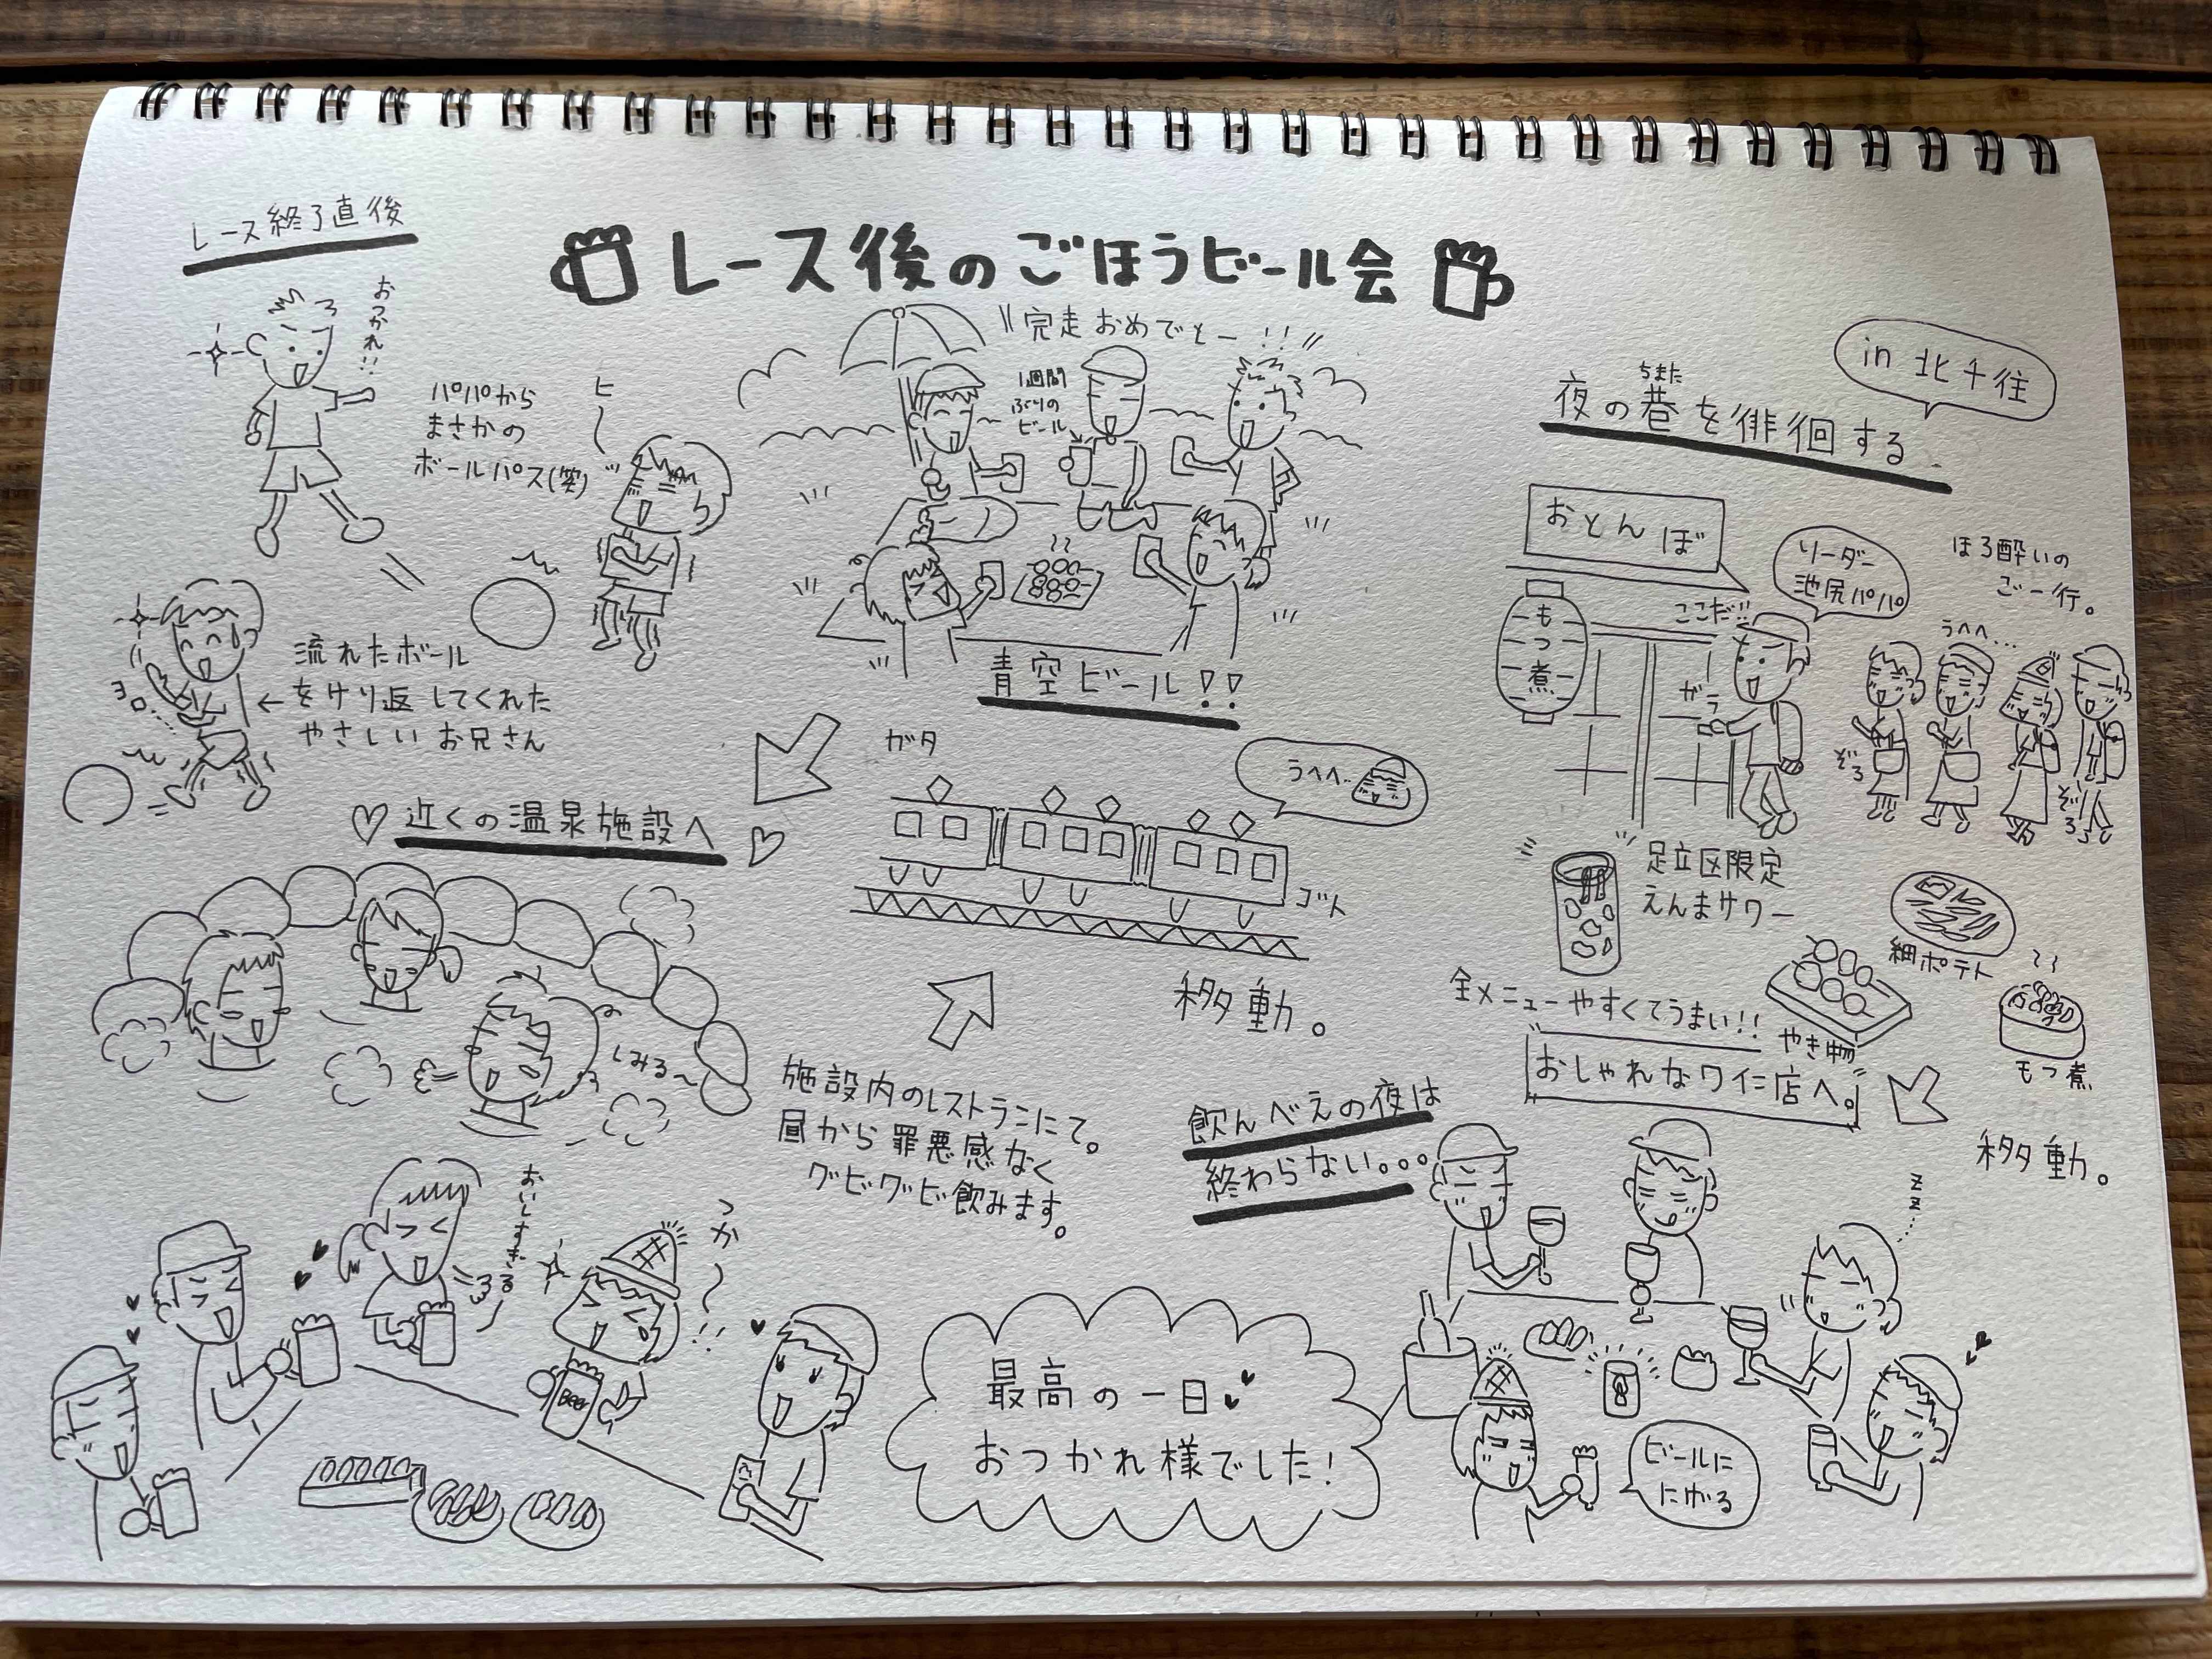 レース後のごほうビール会
レース終了直後
おつかれ!!
パパから
まさかの
ボールパス(笑)
ヒ〜
ヨロ…
流れたボール
←をけり返してくれた
やさしいお兄さん
\\完走おめでとー!!//
1週間
ぶりの
ビール
青空ビール!!
♡近くの温泉施設へ♡
しみる〜
ガタ
ゴト
うへへ…
移動。
施設内のレストランにて。
昼から罪悪感なく
グビグビ飲みます。
おいしすぎるー
つか〜!!
Beer
in 北千住
ちまた
夜の巷を徘徊する
おとんぼ
もつ煮
ここだ!!
ガラ
リーダー
池尻パパ
ほろ酔いの
ご一行。
うへへ…
ぞろ
ぞろ
足立区限定
えんまサワー
細ポテト
やき物
もつ煮
全メニューやすくてうまい!!
おしゃれなワイン店へ。
移動。
飲んべえの夜は
終わらない。。。
zz…
ビールに
にげる
最高の一日
おつかれ様でした!